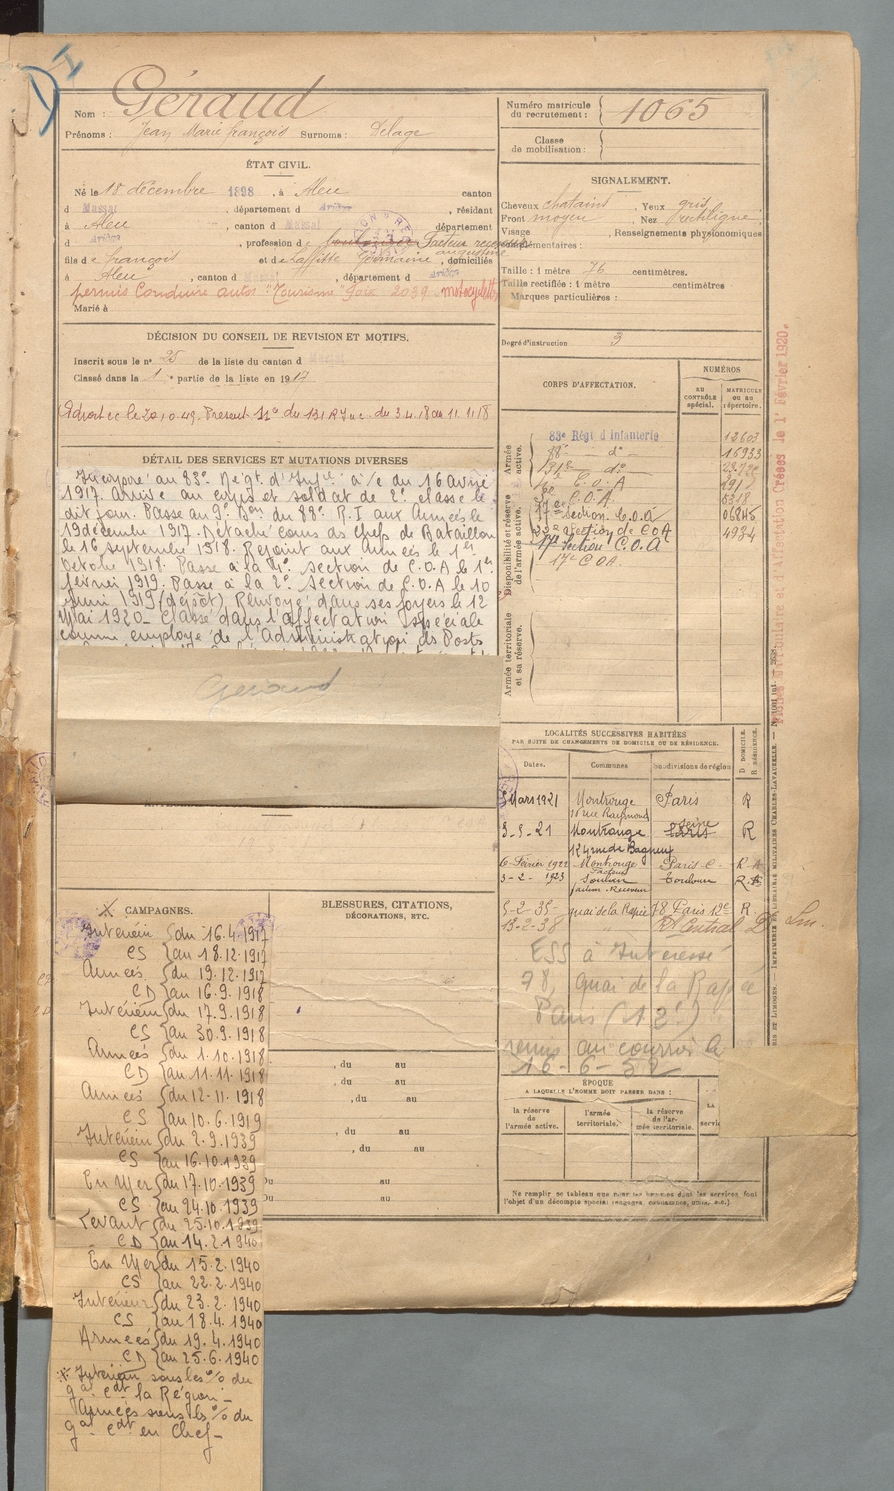 Géraud
Nom :
Prénoms : Jean Marie François Surnoms : Delage
Numéro matricule du recrutement : 1065
Classe de mobilisation :
ÉTAT CIVIL.
Né le 18 décembre 1898, à Aleu canton
d Massat, département d Ariège, résidant
à Aleu, canton d Massat département
d Ariège, profession de Facteur receveur
fils de François et de Laffitte Germaine augustine, domiciliés
à Aleu, canton d Massat, département d Ariège
permis Conduire autos "Tourisme" Foix 2039 motocyclette
Marié à
SIGNALEMENT.
Cheveux chatains, Yeux gris
Front moyen, Nez rectiligne
Visage, Renseignements physionomiques
complémentaires :
Taille : 1 mètre 76 centimètres.
Taille rectifiée : 1 mètre centimètres
Marques particulières :
Degré d'instruction 3
DÉCISION DU CONSEIL DE REVISION ET MOTIFS.
Inscrit sous le n° 25 de la liste du canton d Massat
Classé dans la 1re partie de la liste en 1917
du 3.4.18 au 11.11.18
CORPS D'AFFECTATION.
NUMÉROS
AU CONTRÔLE SPÉCIAL.
MATRICULE OU AU RÉPERTOIRE.
Armée active.
Disponibilité et réserve de l'armée active.
Armée territoriale et sa réserve.
83e Régt d'Infanterie 12603
88e - do - 16933
do -
C.O.A
C.O.A. 5318
17e Section C.O.A 06845
22e section de COA 4934
17e Section C.O.A
17e COA.
DÉTAIL DES SERVICES ET MUTATIONS DIVERSES
Incorporé au 83e Régt. d'Infie à/c du 16 Avril
1917. Arrivé au corps et soldat de 2e classe le
dit jour. Passé au 9e Bon du 88e R.I aux Armées le
19 décembre 1917. Détaché cours des Chefs de Bataillon
le 16 septembre 1918. Rejoint aux Armées le 1er
Octobre 1918. Passé à la 4e section de C.O.A le 1er
février 1919. Passé à la 2e Section de C.O.A le 10
Juin 1919 (dépôt). Renvoyé dans ses foyers le 12
Mai 1920_ Classé dans l'affectation spéciale
comme employé de l'Administration des Posts
Géraud
LOCALITÉS SUCCESSIVES HABITÉES
PAR SUITE DE CHANGEMENTS DE DOMICILE OU DE RÉSIDENCE.
Dates. Communes Subdivisions de région D DOMICILE. R RÉSIDENCE.
Mars 1921 Montrouge Paris R
16 rue Raymond
3-5-21 Montrouge Seine Paris R
124 rue de Bagneux
6 Février 1922 Montrouge Paris C- R
3-2-1923 Soulan Toulouse R.
facteur-Receveur
5-2-35- quai de la Rapée 78 Paris 12e R
13-2-38 " Rt Central D
ESS à Intéressé
78, Quai de la Rapée
Paris (12e)
remis au courrier le
16-6-52
CAMPAGNES.
Intérieur du 16.4.1917
CS au 18.12.1917
Armées du 19.12.1917
CD au 16.9.1918
Intérieur du 17.9.1918
CS au 30.9.1918
Armées du 1.10.1918
CD au 11.11.1918
Armées du 12-11-1918
CS au 10.6.1919
Intérieur du 2.9.1939
CS au 16.10.1939
En Mer du 17.10.1939
CS au 24.10.1939
Levant du 25.10.1939
CD au 14.2.1940
En Mer du 15.2.1940
CS au 22.2.1940
Intérieur du 23.2.1940
CS au 18.4.1940
Armées du 19.4.1940
CD au 25.6.1940
* Intérieur sous les % du
gal Cdt la Région -
Armées sous ls % du
gal Cdt en Chef -
BLESSURES, CITATIONS,
DÉCORATIONS, ETC.
, du au
, du au
, du au
, du au
, du au
du au
du au
ÉPOQUE
A LAQUELLE L'HOMME DOIT PASSER DANS :
la réserve de l'armée active.
l'armée territoriale.
la réserve de l'armée territoriale.
Ne remplir ce tableau que pour les hommes dont les services font
l'objet d'un décompte spécial (engagés, condamnés, omis, etc.)
d'Affectation Créées le 1er Février 1920.
IMPRIMERIE LIBRAIRIE MILITAIRES CHARLES-LAVAUZELLE.